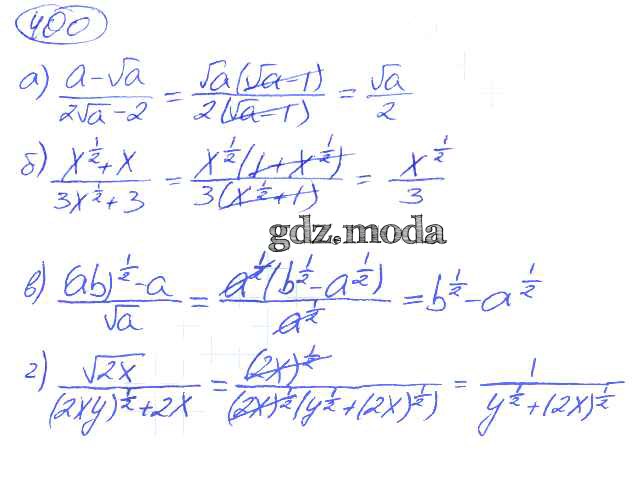 400
а) (a-√a)/(2√a-2) = (√a(√a-1))/(2(√a-1)) = √a/2
б) (x^(1/2)+x)/(3x^(1/2)+3) = (x^(1/2)(1+x^(1/2)))/(3(x^(1/2)+1)) = x^(1/2)/3
gdz.moda
в) ((ab)^(1/2)-a)/√a = (a^(1/2)(b^(1/2)-a^(1/2)))/a^(1/2) = b^(1/2)-a^(1/2)
г) √2x/((2xy)^(1/2)+2x) = (2x)^(1/2)/((2x)^(1/2)(y^(1/2)+(2x)^(1/2))) = 1/(y^(1/2)+(2x)^(1/2))